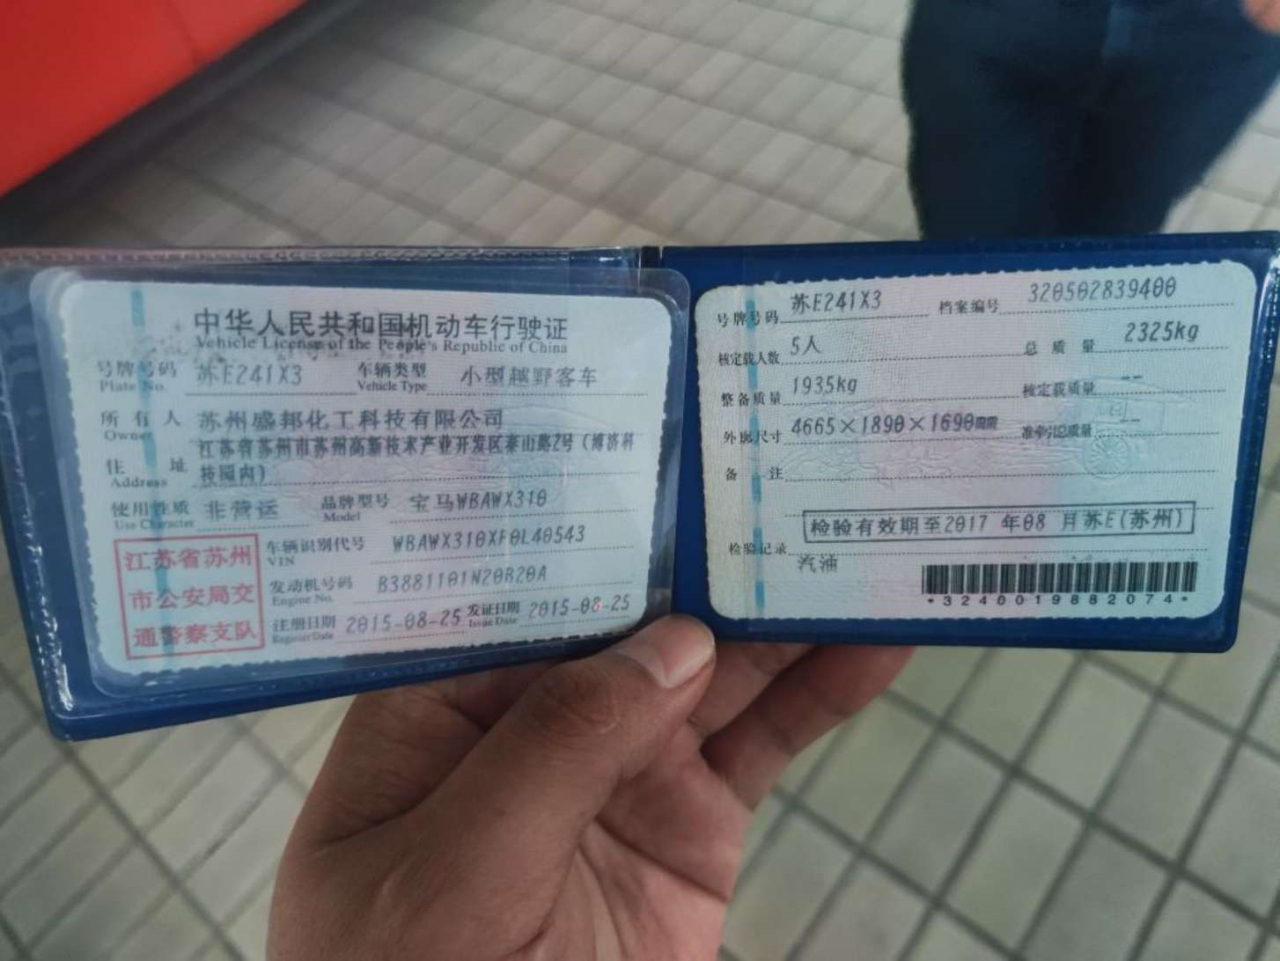 中华人民共和国机动车行驶证
Vehicle License of the People's Republic of China
号牌号码 苏E241X3 车辆类型 小型越野客车
Plate No. Vehicle Type
所有人 苏州盛邦化工科技有限公司
Owner
住址 江苏省苏州市苏州高新技术产业开发区泰山路2号（博济科
Address 技园内）
使用性质 非营运 品牌型号 宝马WBAWX310
Use Character Model
江苏省苏州
市公安局交
通警察支队
车辆识别代号 WBAWX310XF0L40543
VIN
发动机号码 B3881101N20B20A
Engine No.
注册日期 2015-08-25 发证日期 2015-08-25
Register Date Issue Date
号牌号码 苏E241X3 档案编号 320502839400
核定载人数 5人 总质量 2325kg
整备质量 1935kg 核定载质量 --
外廓尺寸 4665×1890×1690mm 准牵引总质量 --
备注
检验有效期至2017 年08 月苏E(苏州)
检验记录
汽油
*3240019882074*